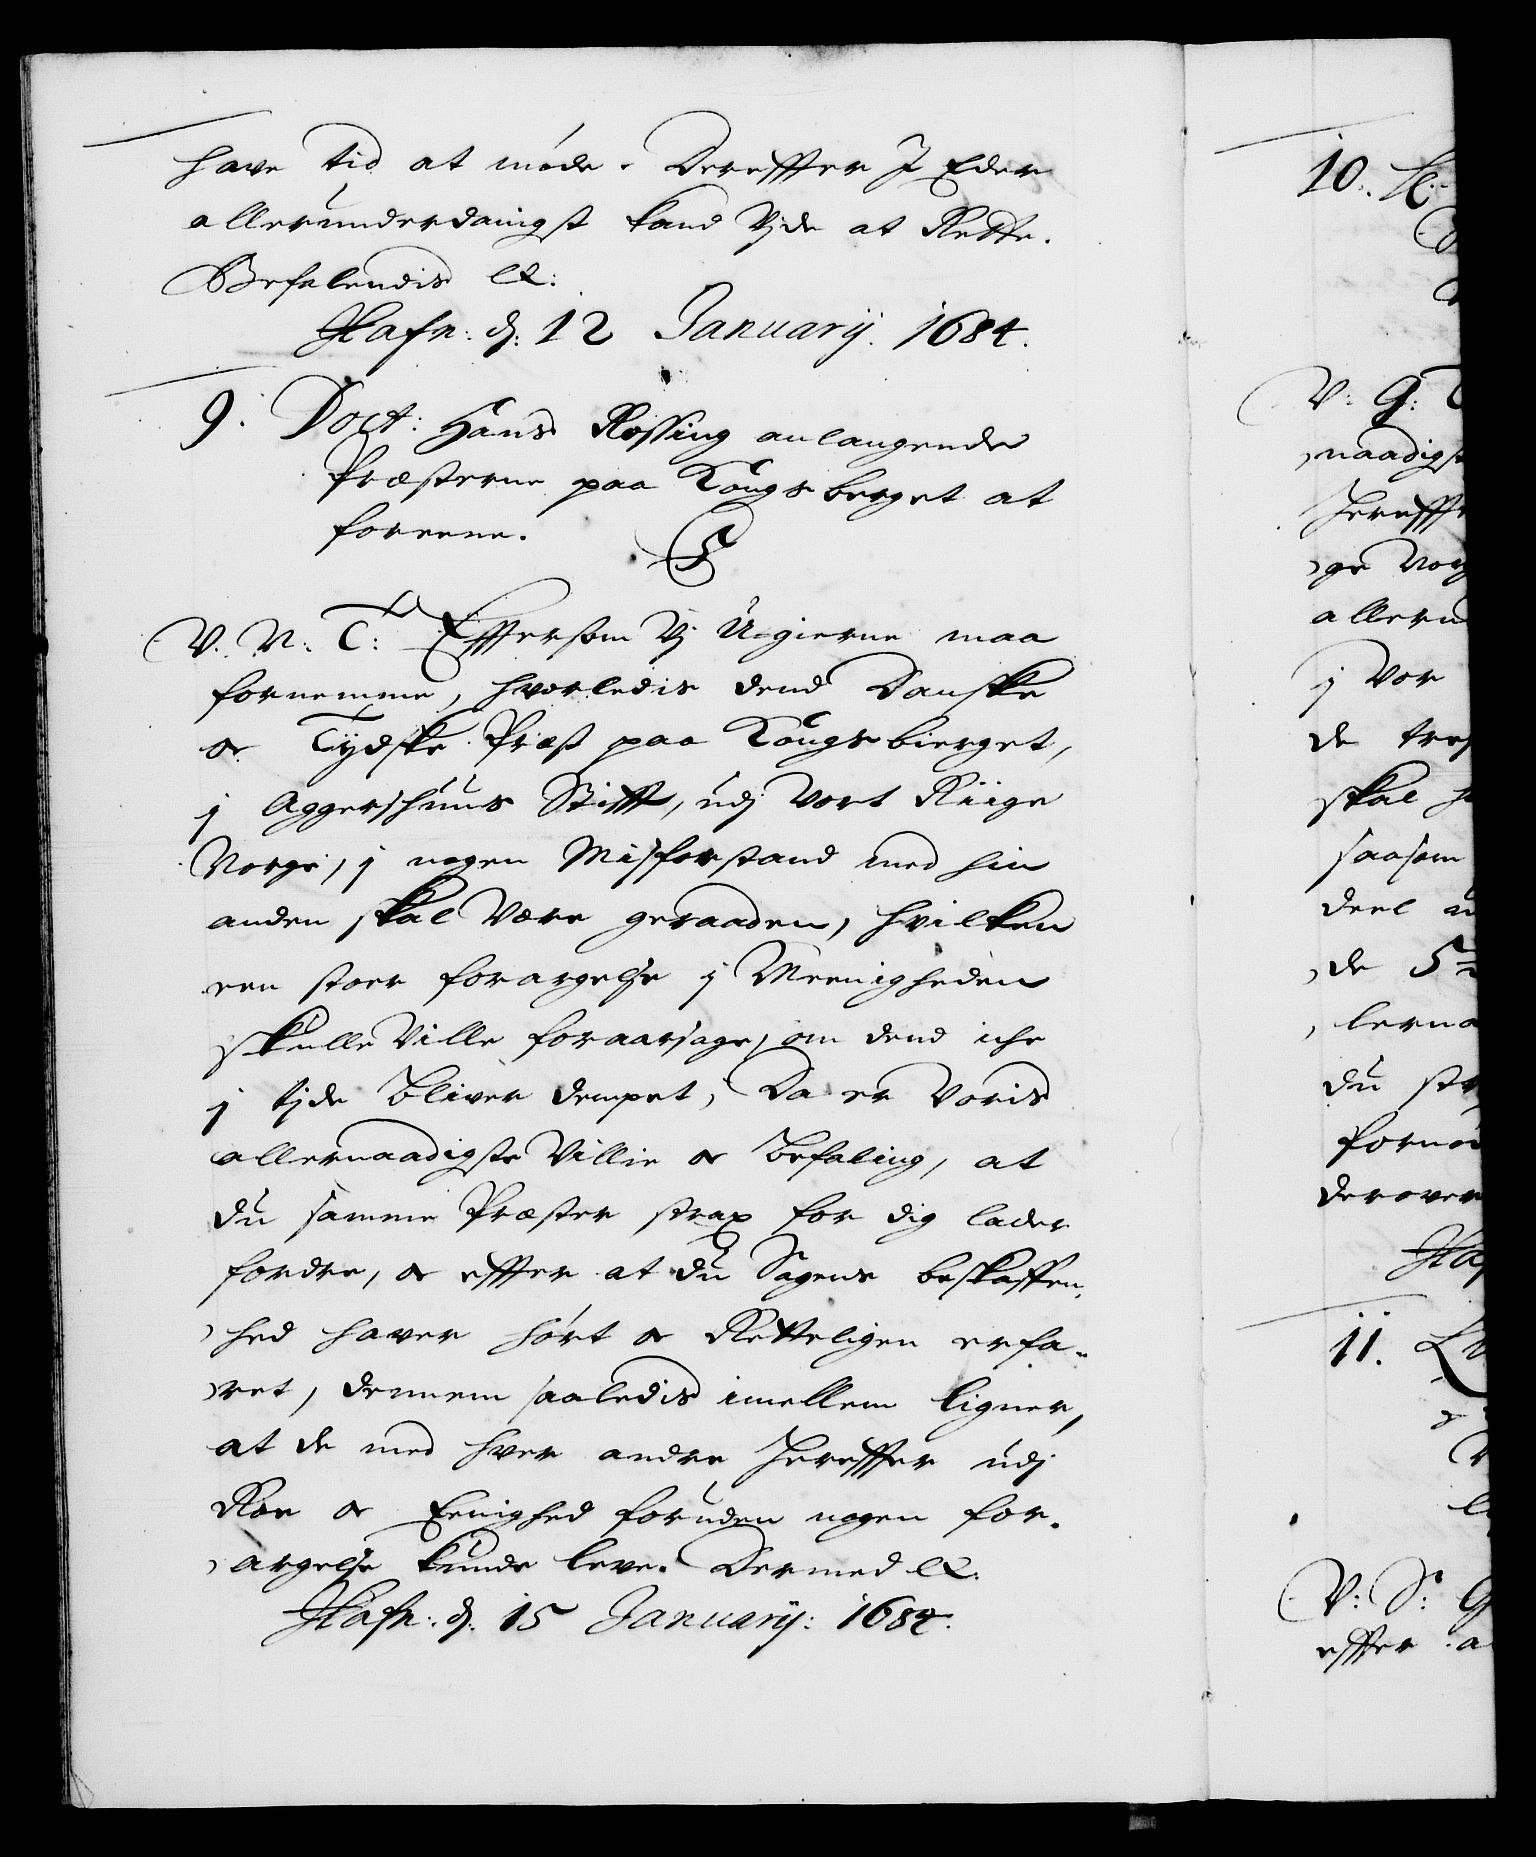 have tid at møde. Derefter I Eder
allerunderdanigst kand Vjde at Rette.
Befalendis &:
Hafn: d: 12 Januarij. 1684.
9. Doct: Hans Rossing anlangende
Præsterne paa Kongsberget at
foreene.
V. N. T: Eftersom Vj Ugierne maa
fornemme, hvorledis dend Danske
oc Tydske Præst paa Kongsbierget,
j Aggershuus Stifft, udj Vort Riige
Norge, j nogen Misforstand med hin
anden skal Være geraaden, hvilken
een stoer forargelse j Meenigheden
skulle Ville foraarsage, om dend iche
j tjde bliver dempet, Da er Voris
allernaadigste Villie oc befaling, at
du samme Præster strax for dig lader
fordre, oc effter at du Sagens beskaffen-
hed haver hørt oc Retteligen erfa-
ret, dennem saaledis imellem ligner,
at de med hver andre herefter udj
Roe oc Eenighed foruden nogen for-
argelse kunde leve. Dermed &.
Hafn: d: 15 Januarij: 1684.
10.
V: G: T
naadigst
herefft
ge Vor
allern
j Vor
de tres
skal
saasom
deel
de 5
lerna
du str
fornø
derover
Haf
11.
V: S: G
effter a